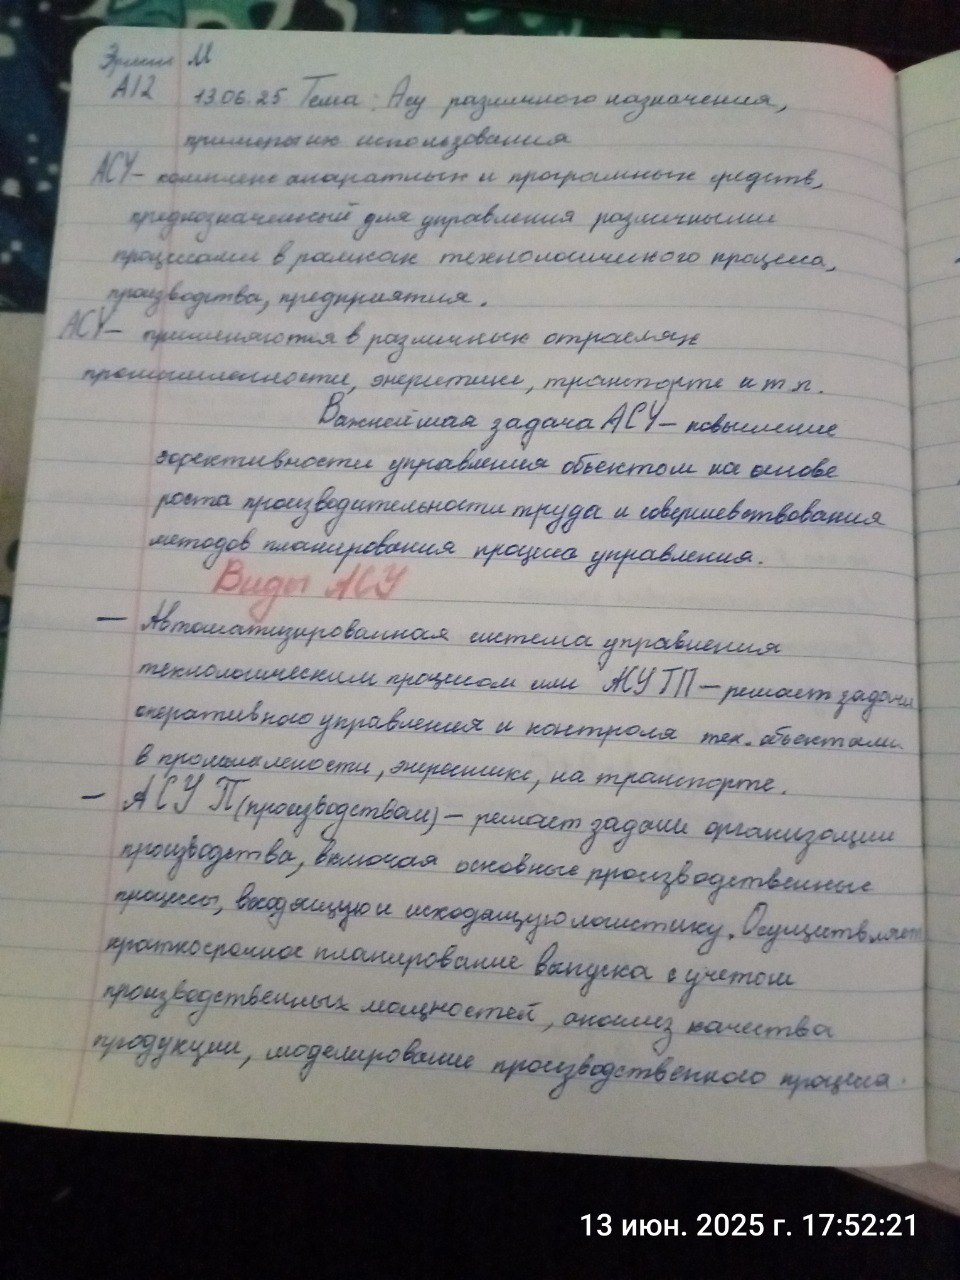 М
А12 13.06.25 Тема: Асу различного назначения,
примеры их использования
АСУ – комплекс апаратных и програмных средств,
предназначенный для управления различными
процесами в рамках технологического процеса,
производства, предприятия.
АСУ – применяются в различных отраслях
промышленности, энергетике, транспорте и т.п.
Важнейшая задача АСУ – повышение
эфективности управления обьектом на основе
роста производительности труда и совершевствования
методов планирования процеса управления.
Виды АСУ
– Автоматизированная система управления
технологическим процесом или АСУ ТП – решает задачи
оперативного управления и контроля тех. обьектами
в промышлености, энергетике, на транспорте.
– АСУ П (производством) – решает задачи организации
производства, включая основные производственные
процесы, входящую и исходящую логистику. Осуществляет
краткосрочное планирование выпуска с учетом
производственных мощностей, анализ качества
продукции, моделирование производственного процеса.
13 июн. 2025 г. 17:52:21